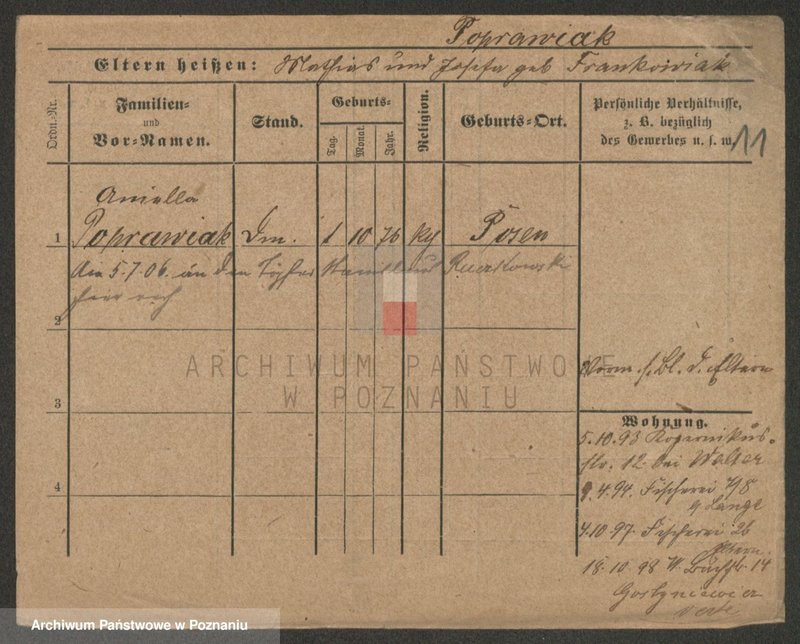 Poprawiak
Eltern heißen: Mathias und Josefa geb Frankowiak
Ordn.-Nr.
Familien-
und
Vor-Namen.
Stand.
Geburts-
Tag.
Monat.
Jahr.
Religion.
Geburts-Ort.
Persönliche Verhältnisse,
z. B. bezüglich
des Gewerbes u. s. w.
11
Aniella
1 Poprawiak Dm. 1 10 76 kg Posen
Am 5.7.06. an den Töpfer Stanislaus
hier verh
2
ARCHIWUM PAŃSTWOWE
W POZNANIU
Vorm. s. Bl. d. Eltern
3
Wohnung.
5.10.93 Kopernikus-
str. 12 bei Walter
9.4.94. Fischerei 7/8
4
4.10.97. Fischerei 26
Eltern.
18.10.98 W. 14
verte
Archiwum Państwowe w Poznaniu